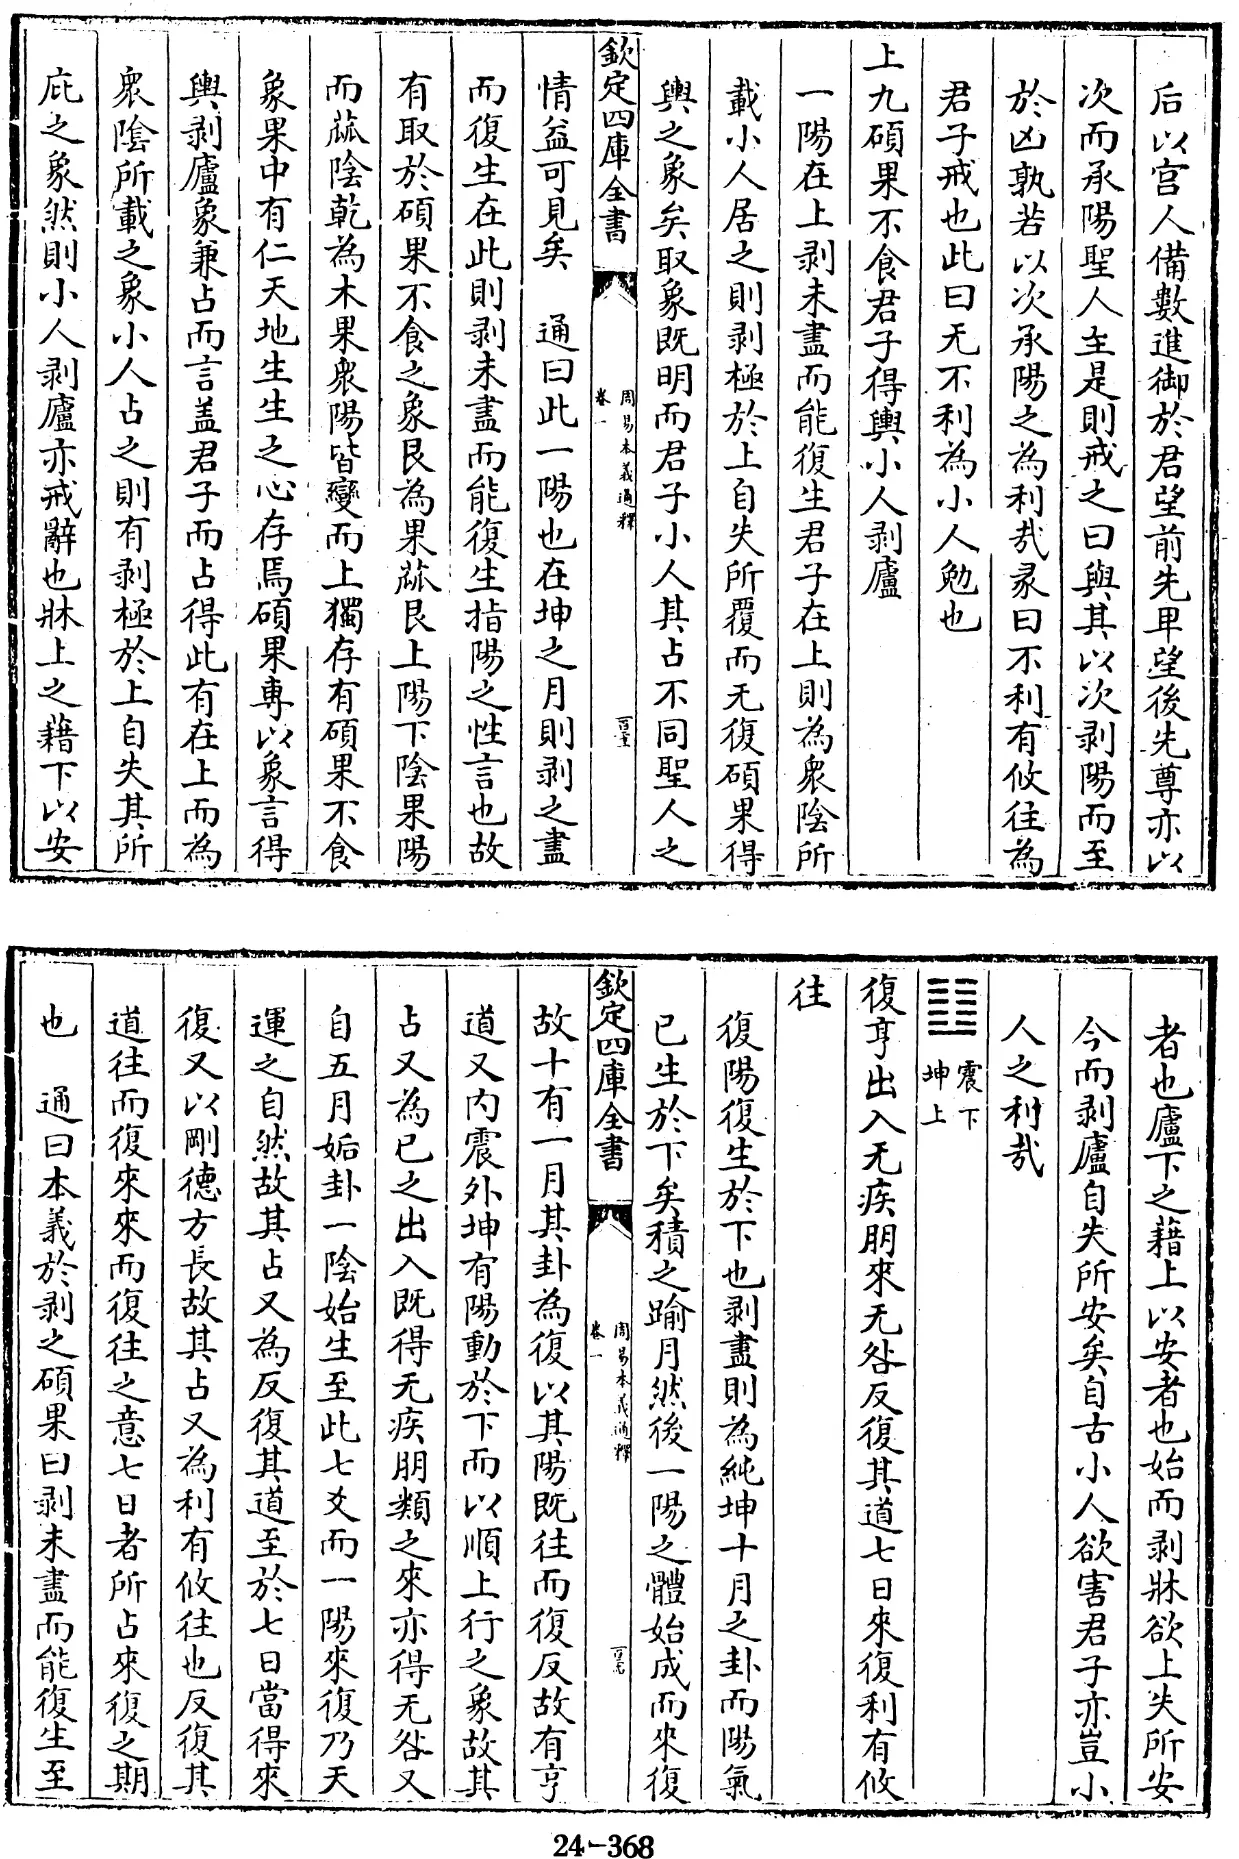 后以宫人備數進御於君望前先卑望後先尊亦以
次而承陽聖人至是則戒之曰與其以次剥陽而至
於凶孰若以次承陽之為利哉彖曰不利有攸往為
君子戒也此曰无不利為小人勉也
上九碩果不食君子得輿小人剥廬
一陽在上剥未盡而能復生君子在上則為衆陰所
載小人居之則剥極於上自失所覆而无復碩果得
輿之象矣取象既明而君子小人其占不同聖人之
欽定四庫全書
周易本義通釋
卷一
情益可見矣 通曰此一陽也在坤之月則剥之盡
而復生在此則剥未盡而能復生指陽之性言也故
有取於碩果不食之象艮為果蓏艮上陽下陰果陽
而蓏陰乾為木果衆陽皆變而上獨存有碩果不食
象果中有仁天地生生之心存焉碩果專以象言得
輿剥廬象兼占而言盖君子而占得此有在上而為
衆陰所載之象小人占之則有剥極於上自失其所
庇之象然則小人剥廬亦戒辭也牀上之藉下以安
者也廬下之藉上以安者也始而剥牀欲上失所安
今而剥廬自失所安矣自古小人欲害君子亦豈小
人之利哉
震下
坤上
復亨出入无疾朋來无咎反復其道七日來復利有攸
往
復陽復生於下也剥盡則為純坤十月之卦而陽氣
已生於下矣積之踰月然後一陽之體始成而來復
欽定四庫全書
周易本義通釋
卷一
故十有一月其卦為復以其陽既往而復反故有亨
道又内震外坤有陽動於下而以順上行之象故其
占又為已之出入既得无疾朋類之來亦得无咎又
自五月姤卦一陰始生至此七爻而一陽來復乃天
運之自然故其占又為反復其道至於七日當得來
復又以剛德方長故其占又為利有攸往也反復其
道往而復來來而復往之意七日者所占來復之期
也 通曰本義於剥之碩果曰剥未盡而能復生至
24-368